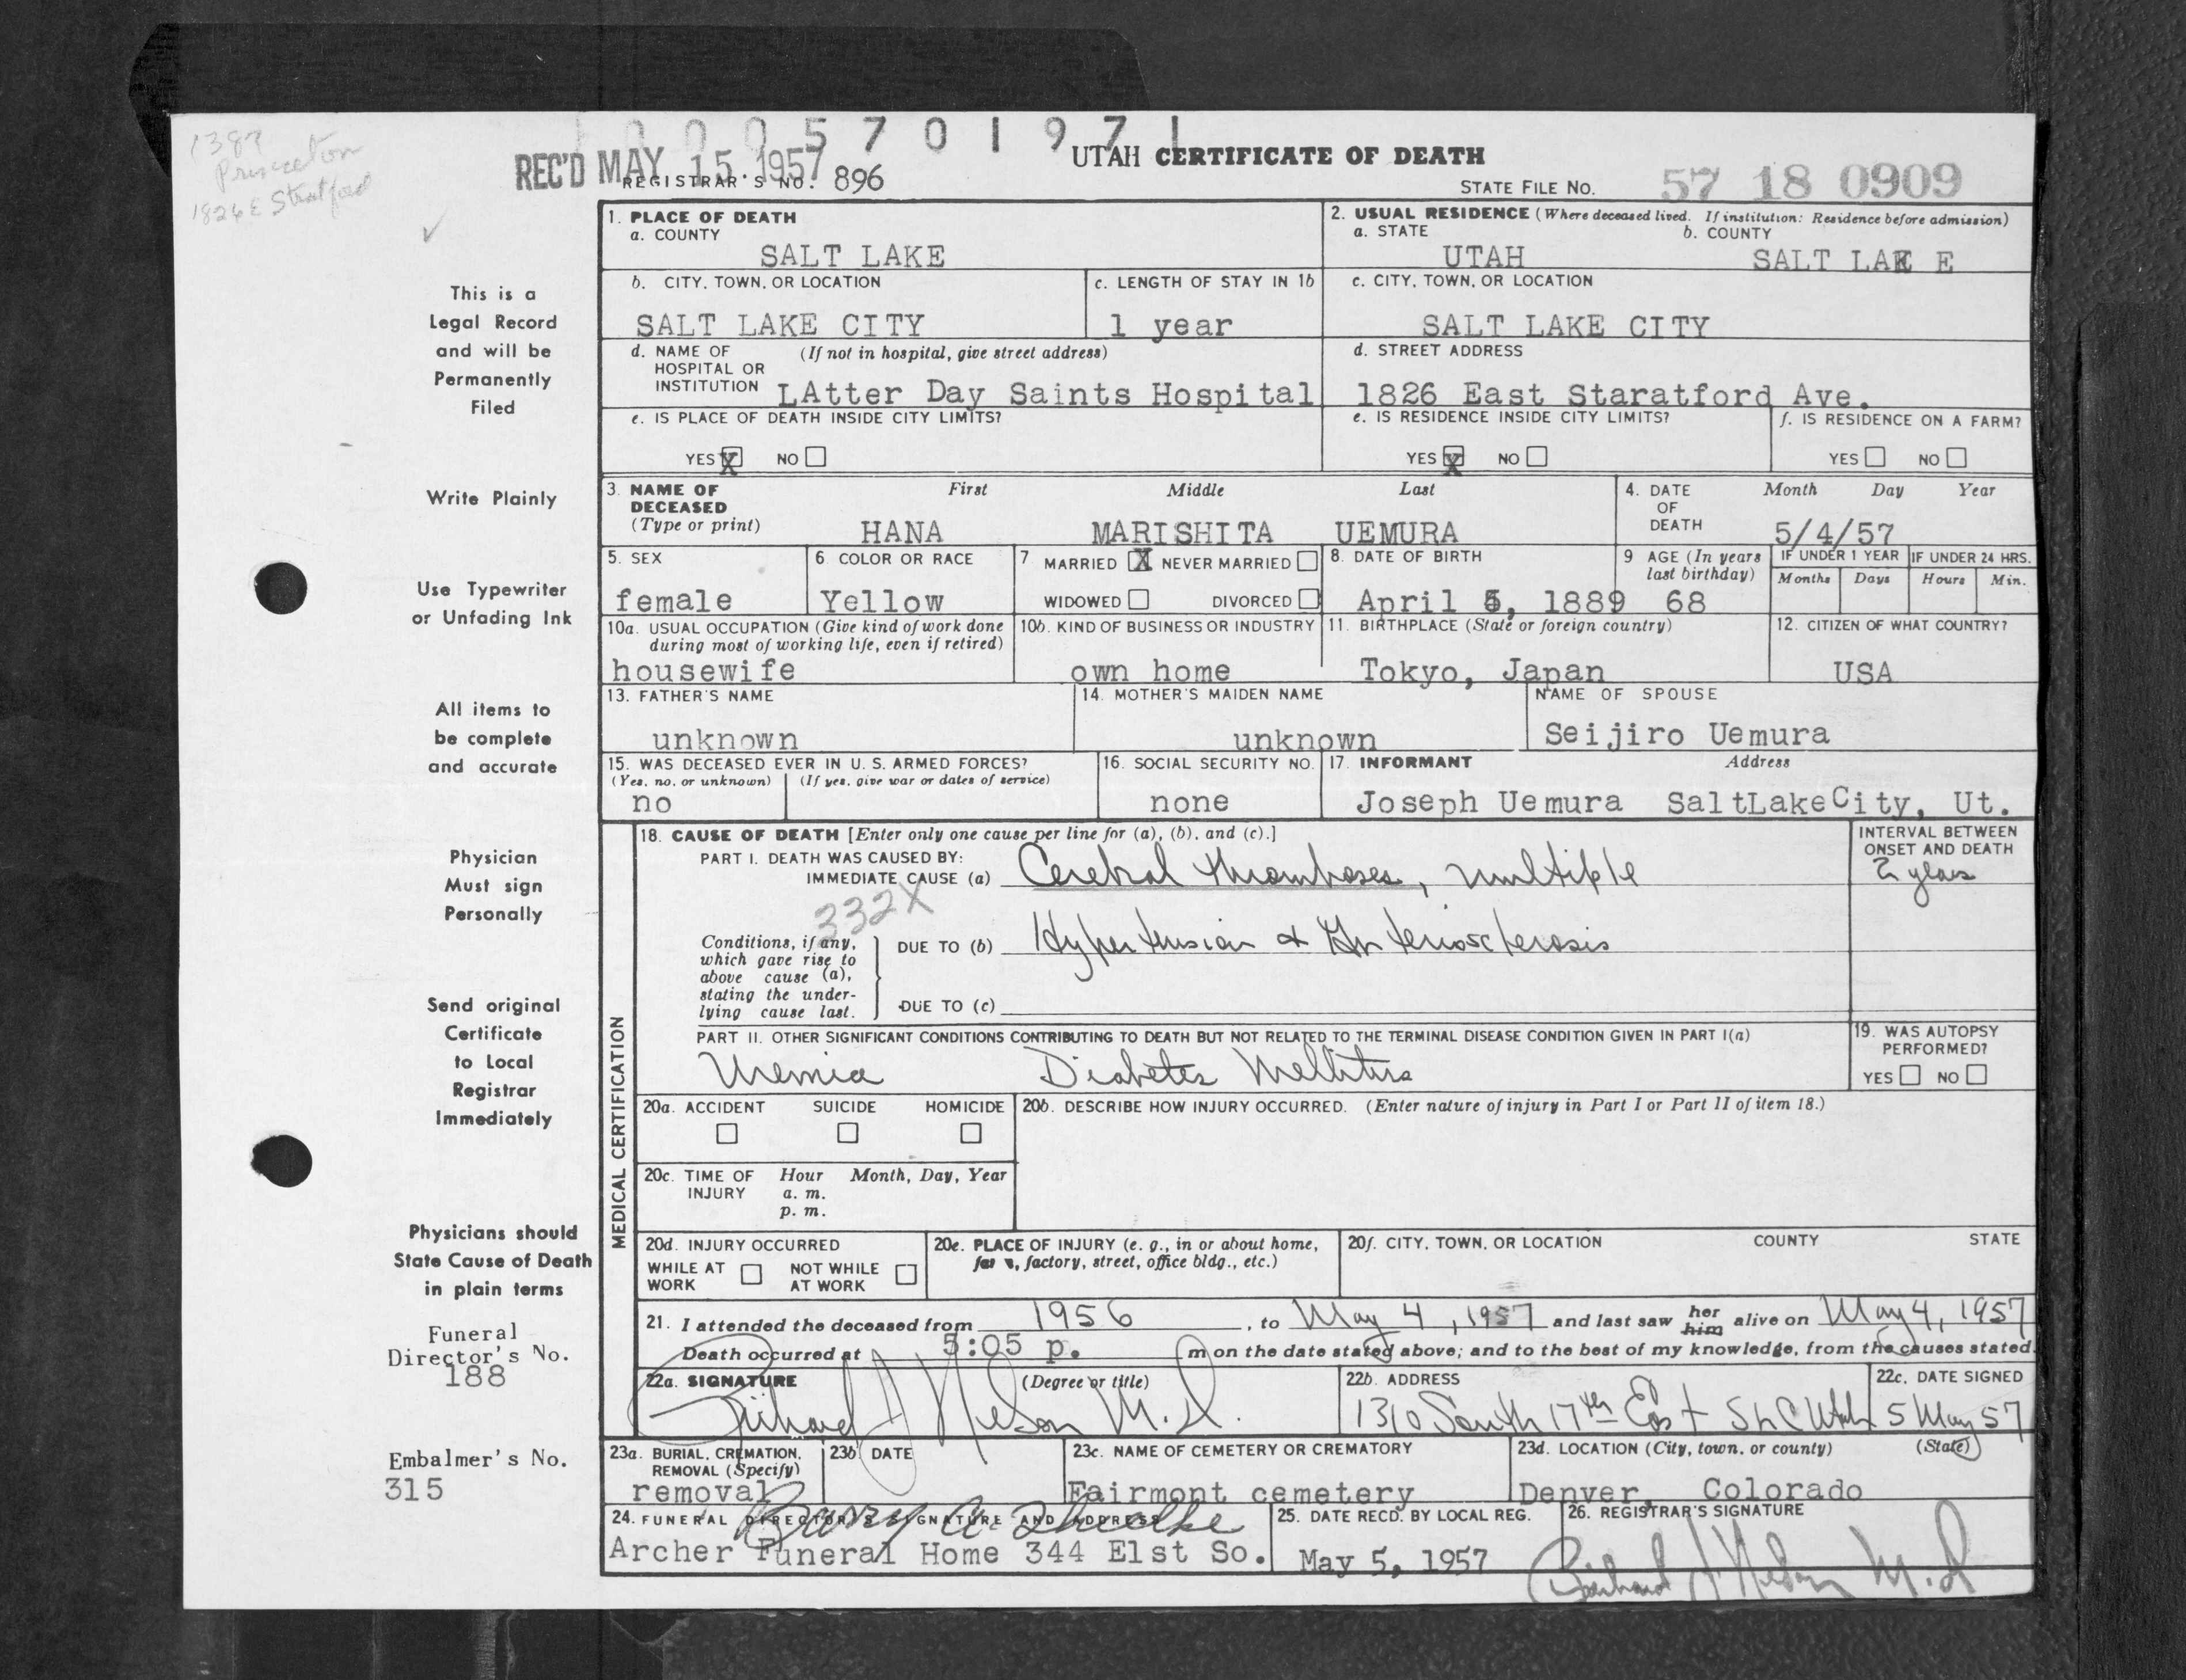 1387
Princeton
1826 E Stratford
0 0 0 5 7 0 1 9 7 1
REC'D MAY 15 1957
REGISTRAR'S NO. 896
UTAH CERTIFICATE OF DEATH
STATE FILE NO. 57 18 0909
This is a
Legal Record
and will be
Permanently
Filed
Write Plainly
Use Typewriter
or Unfading Ink
All items to
be complete
and accurate
Physician
Must sign
Personally
Send original
Certificate
to Local
Registrar
Immediately
Physicians should
State Cause of Death
in plain terms
Funeral
Director's No.
188
Embalmer's No.
315
1. PLACE OF DEATH
a. COUNTY
SALT LAKE
2. USUAL RESIDENCE (Where deceased lived. If institution: Residence before admission)
a. STATE b. COUNTY
UTAH SALT LAK E
b. CITY, TOWN, OR LOCATION
SALT LAKE CITY
c. LENGTH OF STAY IN 1b
1 year
c. CITY, TOWN, OR LOCATION
SALT LAKE CITY
d. NAME OF (If not in hospital, give street address)
HOSPITAL OR
INSTITUTION LAtter Day Saints Hospital
d. STREET ADDRESS
1826 East Staratford Ave.
e. IS PLACE OF DEATH INSIDE CITY LIMITS?
YES X NO
e. IS RESIDENCE INSIDE CITY LIMITS?
YES X NO
f. IS RESIDENCE ON A FARM?
YES NO
3. NAME OF First Middle Last
DECEASED
(Type or print) HANA MARISHITA UEMURA
4. DATE Month Day Year
OF
DEATH 5/4/57
5. SEX
female
6. COLOR OR RACE
Yellow
7 MARRIED X NEVER MARRIED
WIDOWED DIVORCED
8. DATE OF BIRTH
April 5, 1889
9 AGE (In years
last birthday)
68
IF UNDER 1 YEAR
Months Days
IF UNDER 24 HRS.
Hours Min.
10a. USUAL OCCUPATION (Give kind of work done
during most of working life, even if retired)
housewife
10b. KIND OF BUSINESS OR INDUSTRY
own home
11. BIRTHPLACE (State or foreign country)
Tokyo, Japan
12. CITIZEN OF WHAT COUNTRY?
USA
13. FATHER'S NAME
unknown
14. MOTHER'S MAIDEN NAME
unknown
NAME OF SPOUSE
Seijiro Uemura
15. WAS DECEASED EVER IN U. S. ARMED FORCES?
(Yes, no, or unknown) (If yes, give war or dates of service)
no
16. SOCIAL SECURITY NO.
none
17. INFORMANT Address
Joseph Uemura SaltLakeCity, Ut.
MEDICAL CERTIFICATION
18. CAUSE OF DEATH [Enter only one cause per line for (a), (b), and (c).]
PART I. DEATH WAS CAUSED BY:
IMMEDIATE CAUSE (a) Cerebral thromboses, multiple
INTERVAL BETWEEN
ONSET AND DEATH
2 years
332X
Conditions, if any,
which gave rise to
above cause (a),
stating the under-
lying cause last.
DUE TO (b) Hypertension & Arteriosclerosis
DUE TO (c)
PART II. OTHER SIGNIFICANT CONDITIONS CONTRIBUTING TO DEATH BUT NOT RELATED TO THE TERMINAL DISEASE CONDITION GIVEN IN PART I(a)
Uremia Diabetes Mellitus
19. WAS AUTOPSY
PERFORMED?
YES NO
20a. ACCIDENT SUICIDE HOMICIDE
20b. DESCRIBE HOW INJURY OCCURRED. (Enter nature of injury in Part I or Part II of item 18.)
20c. TIME OF Hour Month, Day, Year
INJURY a. m.
p. m.
20d. INJURY OCCURRED
WHILE AT NOT WHILE
WORK AT WORK
20e. PLACE OF INJURY (e. g., in or about home,
factory, street, office bldg., etc.)
20f. CITY, TOWN, OR LOCATION COUNTY STATE
21. I attended the deceased from 1956, to May 4, 1957 and last saw her him alive on May 4, 1957
Death occurred at 5:05 p. m on the date stated above; and to the best of my knowledge, from the causes stated.
22a. SIGNATURE (Degree or title)
Richard J Nelson M.D.
22b. ADDRESS
1310 South 17th East SLC Utah
22c. DATE SIGNED
5 May 57
23a. BURIAL, CREMATION,
REMOVAL (Specify)
removal
23b DATE
23c. NAME OF CEMETERY OR CREMATORY
Fairmont cemetery
23d. LOCATION (City, town, or county) (State)
Denver, Colorado
24. FUNERAL DIRECTOR'S SIGNATURE AND ADDRESS
Archer Funeral Home 344 E1st So.
25. DATE RECD. BY LOCAL REG.
May 5, 1957
26. REGISTRAR'S SIGNATURE
Richard J Nelson M.D